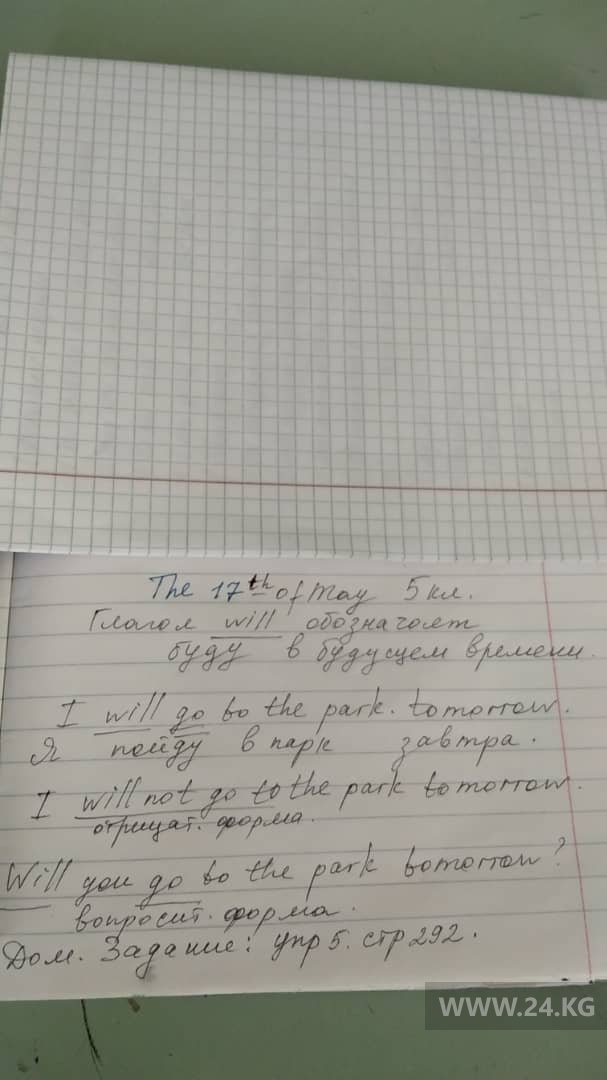 The 17th of May 5 кл.
Глагол will обозначает
буду в будущем времени.
I will go to the park. tomorrow.
Я пойду в парк завтра.
I will not go to the park tomorrow.
отрицат. форма.
Will you go to the park tomorrow?
вопросит. форма.
Дом. Задание: упр 5. стр 292.
WWW.24.KG